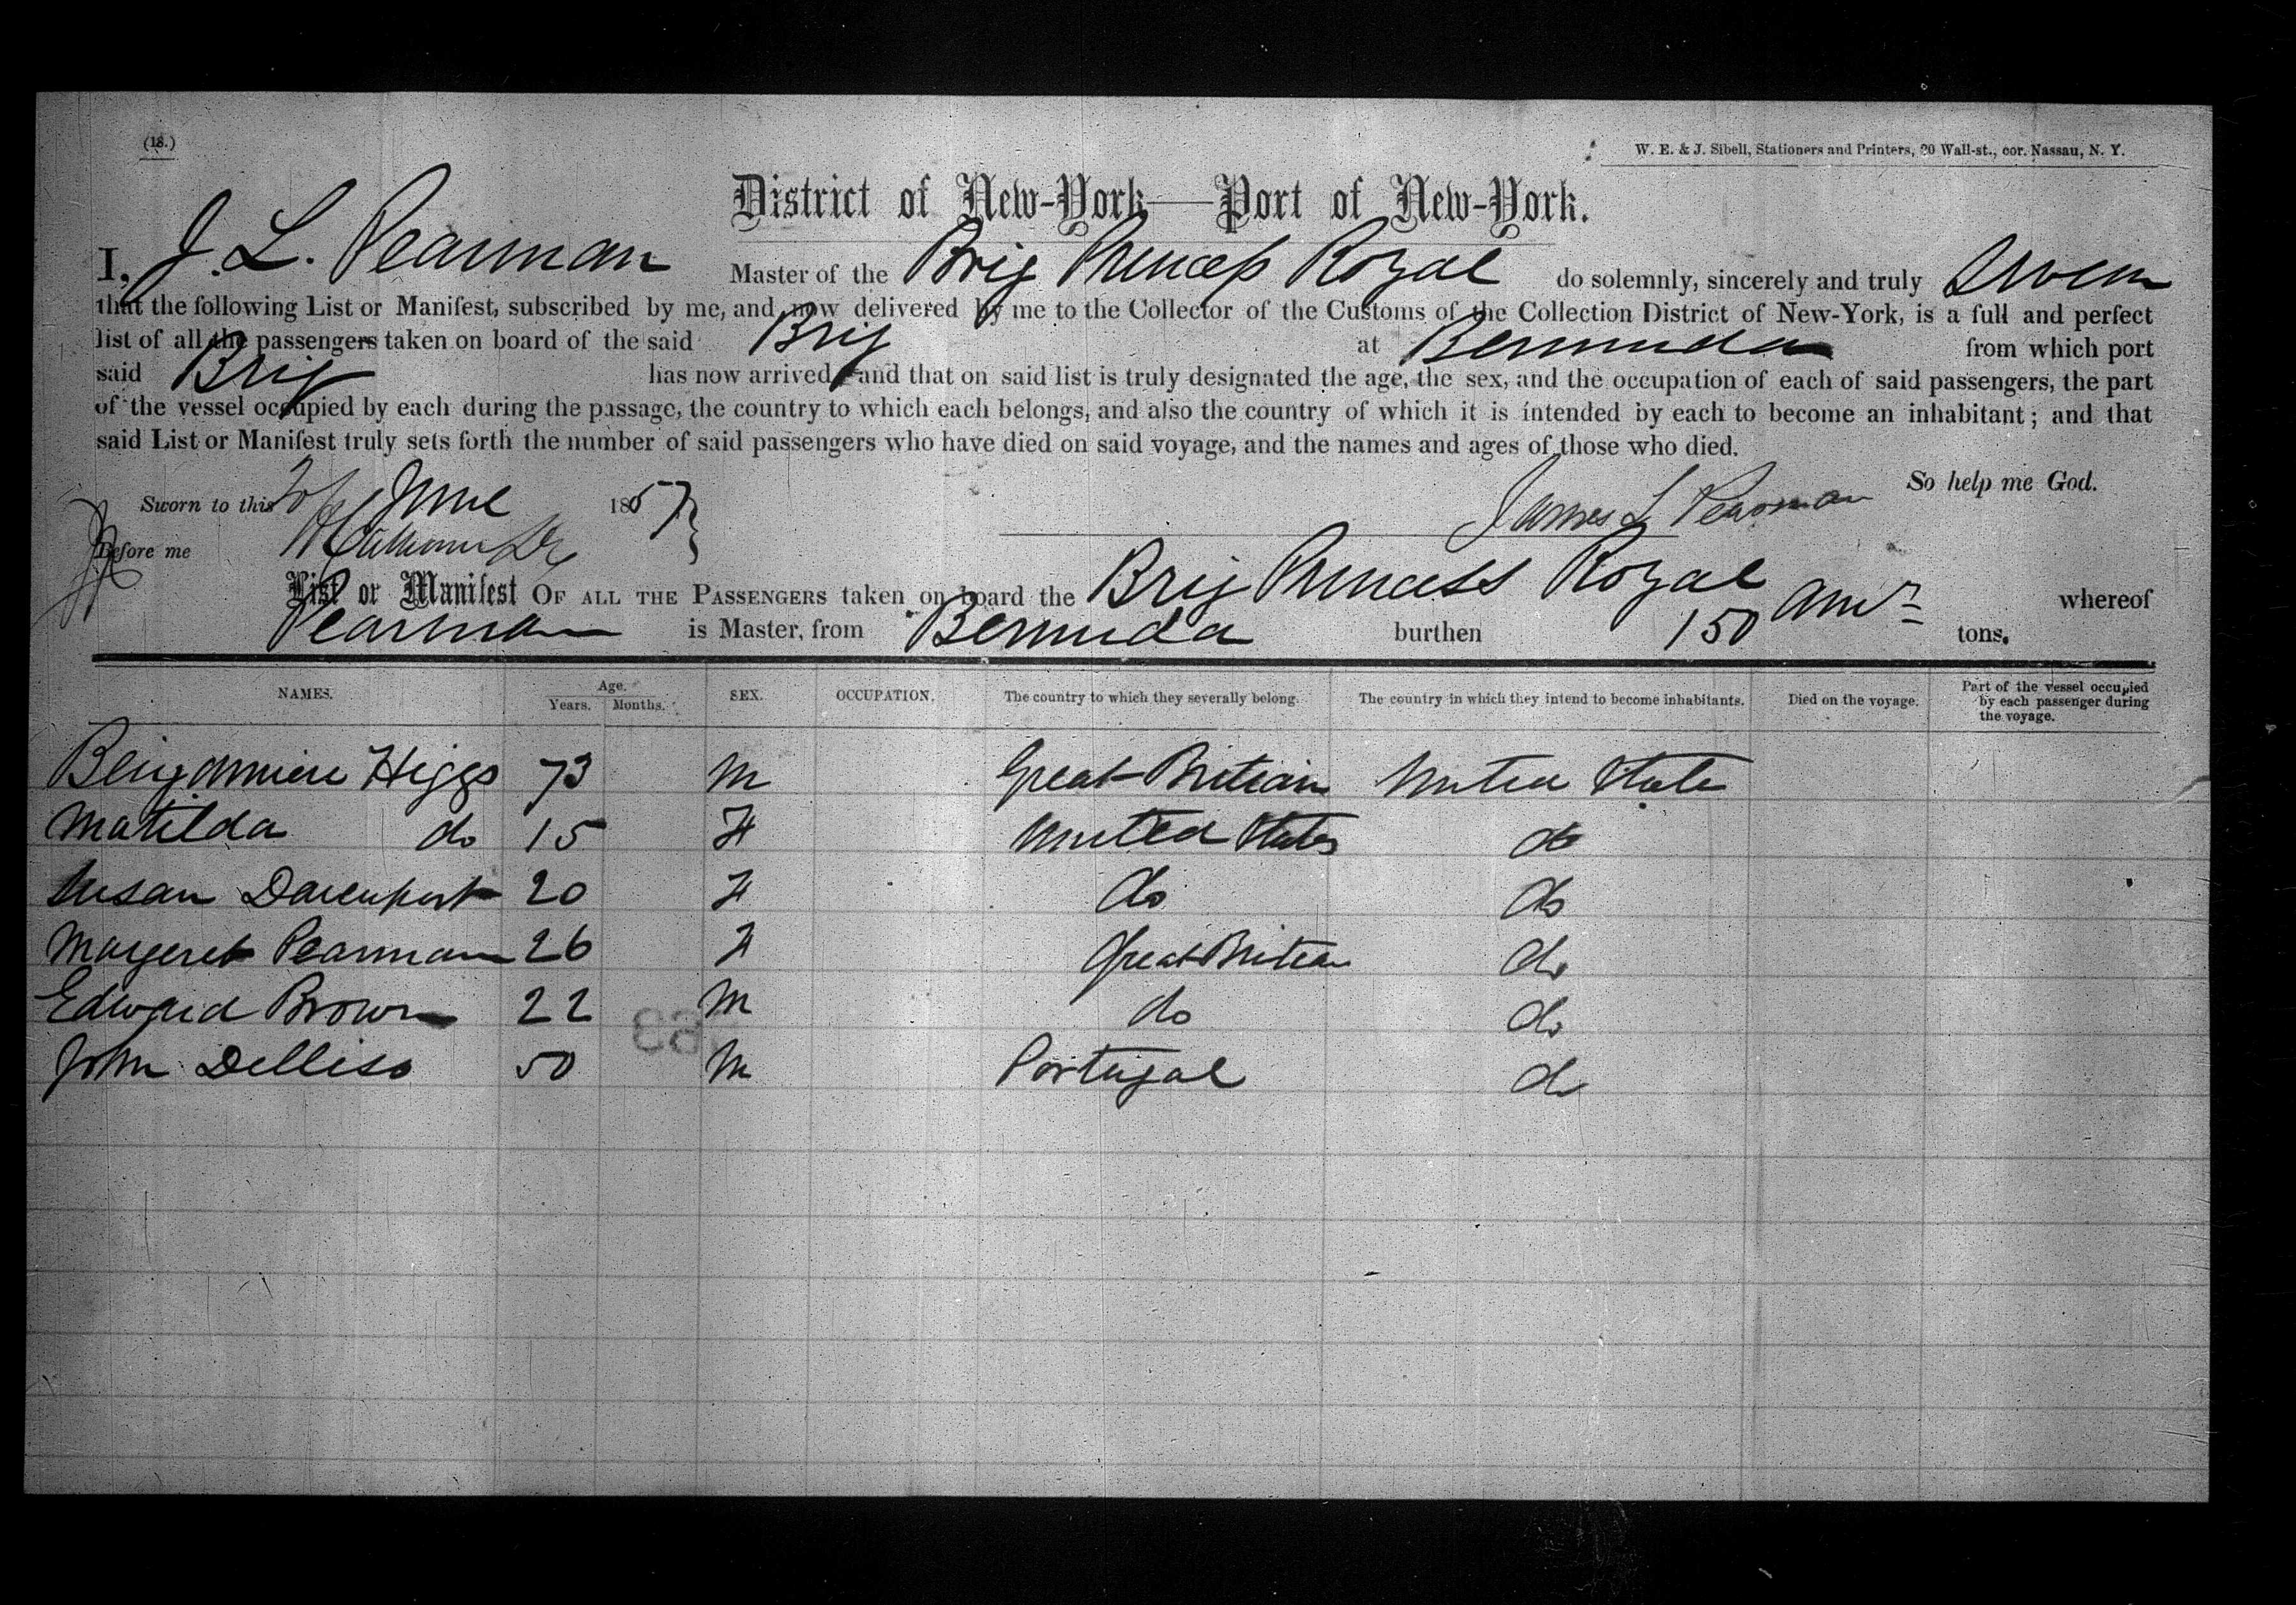 (18.)
W. E. & J. Sibell, Stationers and Printers, 20 Wall-st., cor. Nassau, N. Y.
District of New-York—Port of New-York.
I, J. L. Pearman Master of the Brig Princess Royal do solemnly, sincerely and truly Swear
that the following List or Manifest, subscribed by me, and now delivered by me to the Collector of the Customs of the Collection District of New-York, is a full and perfect
list of all the passengers taken on board of the said Brig at Bermuda from which port
said Brig has now arrived, and that on said list is truly designated the age, the sex, and the occupation of each of said passengers, the part
of the vessel occupied by each during the passage, the country to which each belongs, and also the country of which it is intended by each to become an inhabitant; and that
said List or Manifest truly sets forth the number of said passengers who have died on said voyage, and the names and ages of those who died.
So help me God.
Sworn to this June 1857
James L Pearman
Before me
List or Manifest OF ALL THE PASSENGERS taken on board the Brig Princess Royal whereof
Pearman is Master, from Bermuda burthen 150 tons.
NAMES. Age. Years. Months. SEX. OCCUPATION. The country to which they severally belong. The country in which they intend to become inhabitants. Died on the voyage. Part of the vessel occupied by each passenger during the voyage.
Higgs 73 M Great Britian United State
Matilda do 15 F United States do
Susan Davenport 20 F do do
Margeret Pearman 26 F Great Britian do
Edward Brown 22 M do do
John Delliso 50 M Portugal do